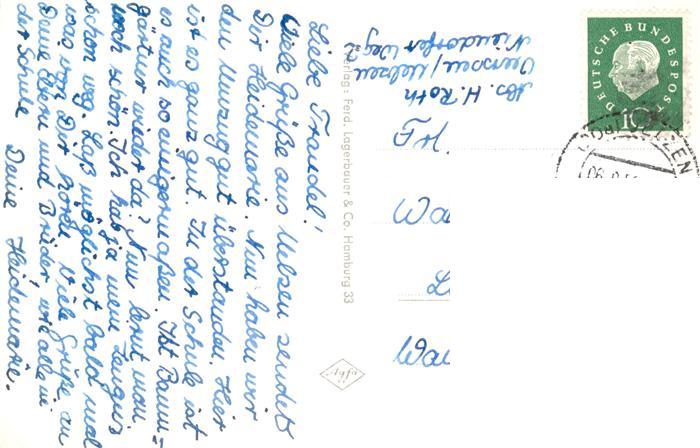 Liebe Traudel!
Viele Grüße aus Uelzen sendet
Dir Heidemarie. Nun haben wir
den Umzug gut überstanden. Hier
ist es ganz gut. In der Schule ist
es auch so einigermaßen. Ist Baum-
gärtner wieder da? Nun lernt man
noch schön. Ich hab ja mein Zeugnis
schon weg. Laß möglichst bald mal
was von Dir hören. Viele Grüße an
Deine Eltern und Brüder wie alle in
der Schule Deine Heidemarie.
Verlag: Ferd. Lagerbauer & Co. Hamburg 33
Agfa
Abs. H. Roth
Veerssen/Uelzen
Niendorfer Weg 2
Fr.
Wa
L
Wa
DEUTSCHE BUNDESPOST
10
UELZEN